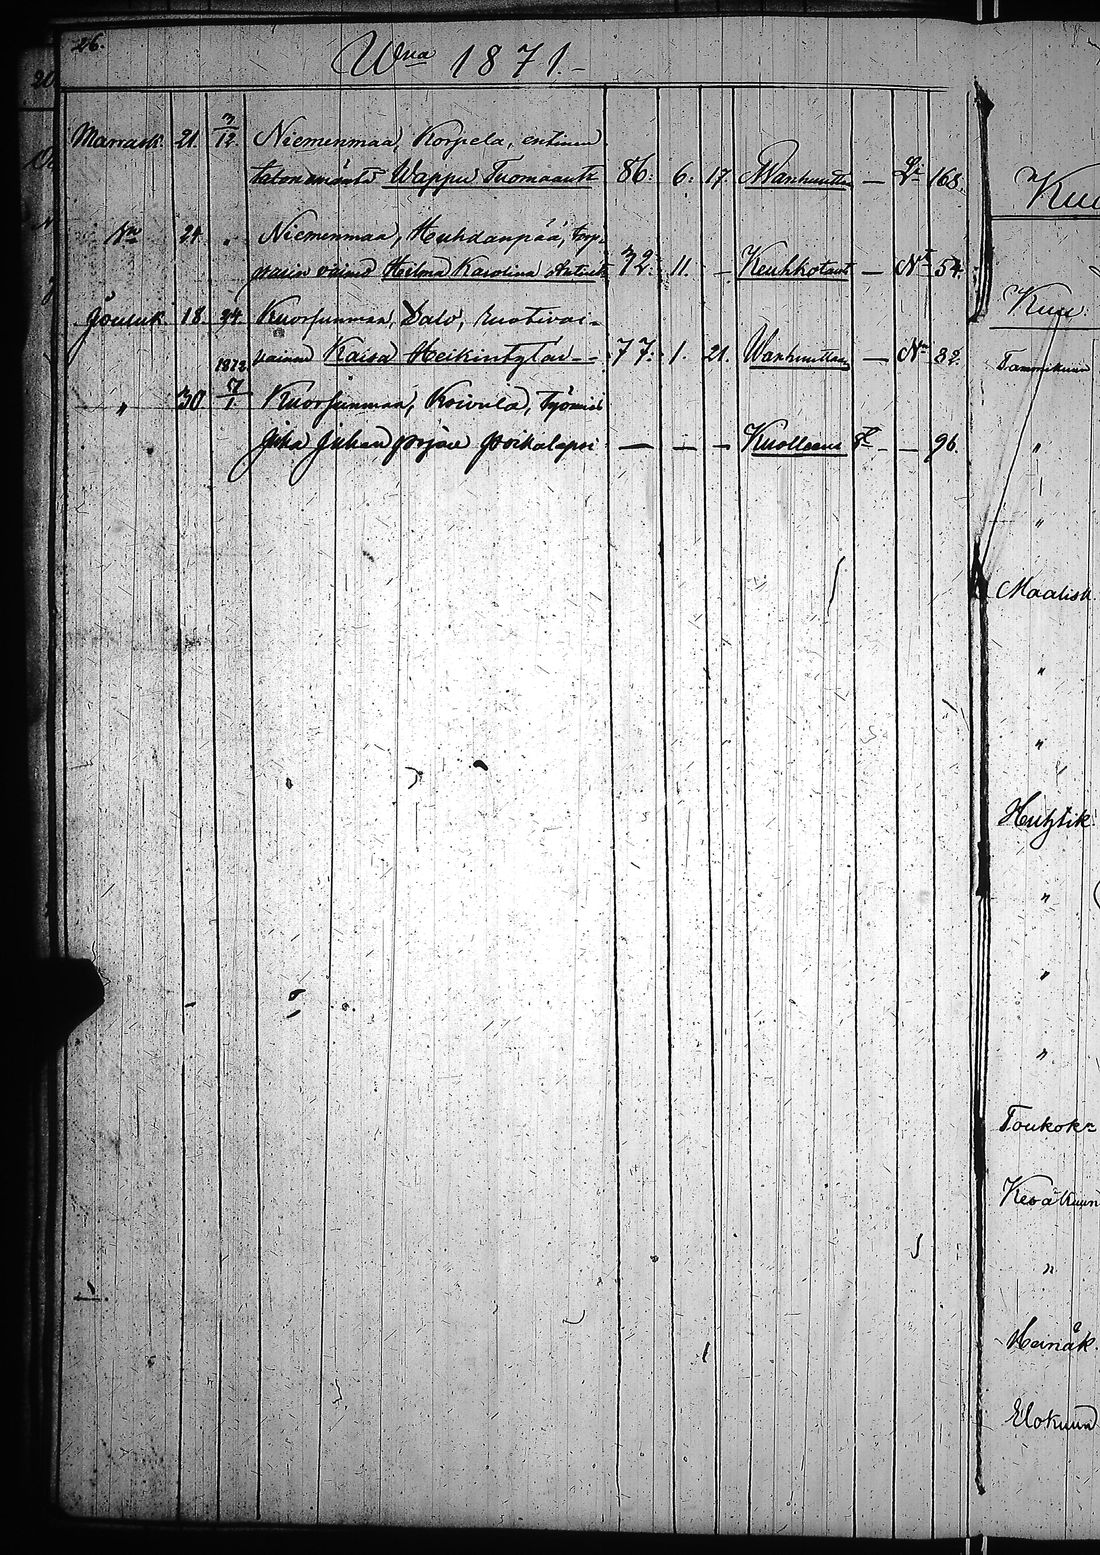 26.
Wna 1871.
Marrask. 21. 3/12. Niemenmaa, Korpela, entinen
talon emäntä Wappu Tuomaantr 86. 6. 17. Wanhuutta — Lr 168.
Sn 24. " Niemenmaa, Huhdanpää, torp-
parin vaimo Helma Karolina Antintr 72. 11. — Keuhkotaut — Nr 54.
Jouluk 18. 24. Kuorsunmaa, Salo, ruotivai-
1872 vainen Kaisa Heikintytär - - 77. 1. 21. Wanhuuttaan — Nr 32.
" 30 7/1. Kuorsunmaa, Koivula, työmies
Juha Juhan pojan poikalapsi — — — Kuolleena — — 96.
20
Kuu
Kuu.
Tammikuun
"
"
Maalisk.
"
"
Huhtik.
"
"
"
Toukok
Kesäkuun
"
Heinäk.
Elokuun